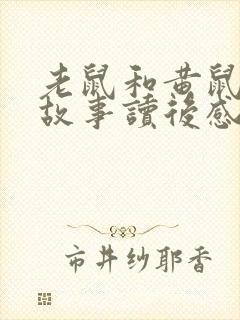 老鼠和黄鼠
故事讀後感
市井纱耶香